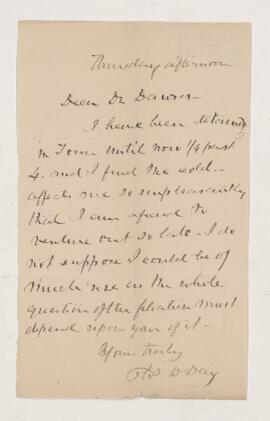 Thursday afternoon
Dear Dr Dawson -
I have been detained
in Town until now 1/4 past
4. and I find the cold
affects me so unpleasantly
that I am afraid to
venture out so late. I do
not suppose I could be of
much use as the whole
question of the must
depend upon your of it -
Yours truly
D Day